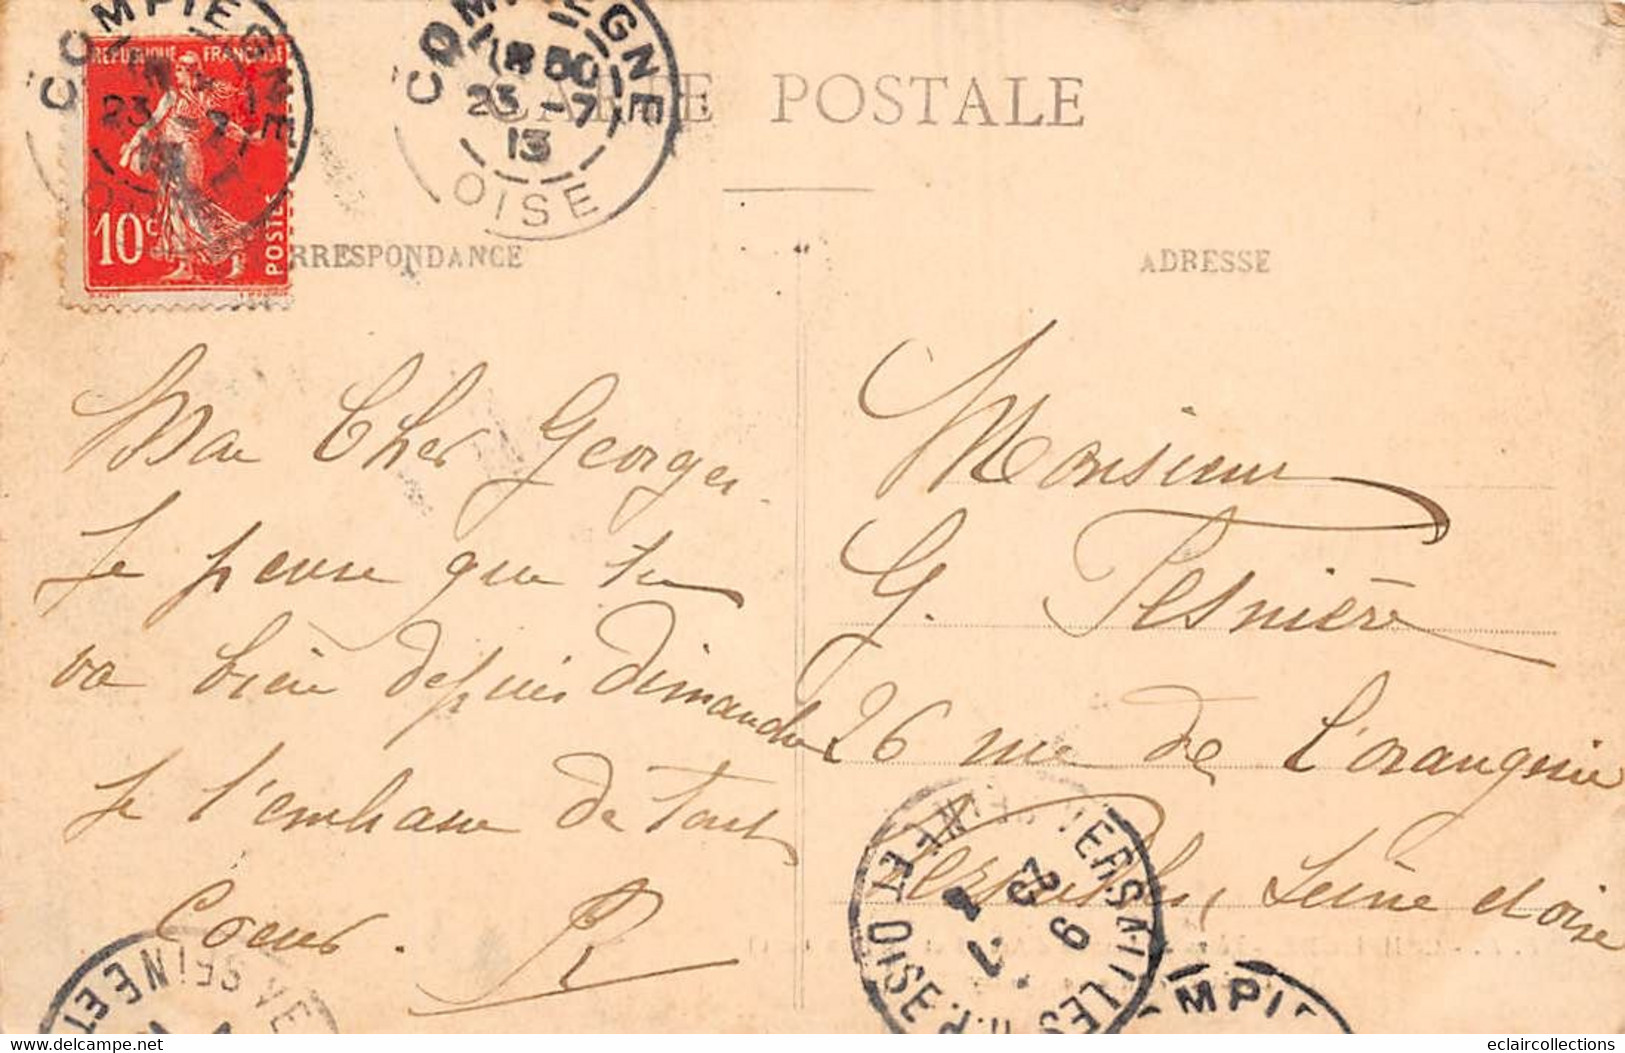 COMPIEGNE
23 -7
13
OISE
REPUBLIQUE FRANÇAISE
10c
POSTES
COMPIEGNE
23 -7
13
OISE
CARTE POSTALE
CORRESPONDANCE
ADRESSE
Mon Cher Georges
Je pense que tu
va bien depuis dimanche
Je t'embrasse de tout
Coeur. R
Monsieur
G. Tesnière
26 rue de l'orangerie
Versailles, Seine et oise
VERSAILLES
SEINE ET OISE
SEINE ET
VE
MPIE
eclaircollections
© delcampe.net
eclaircollections